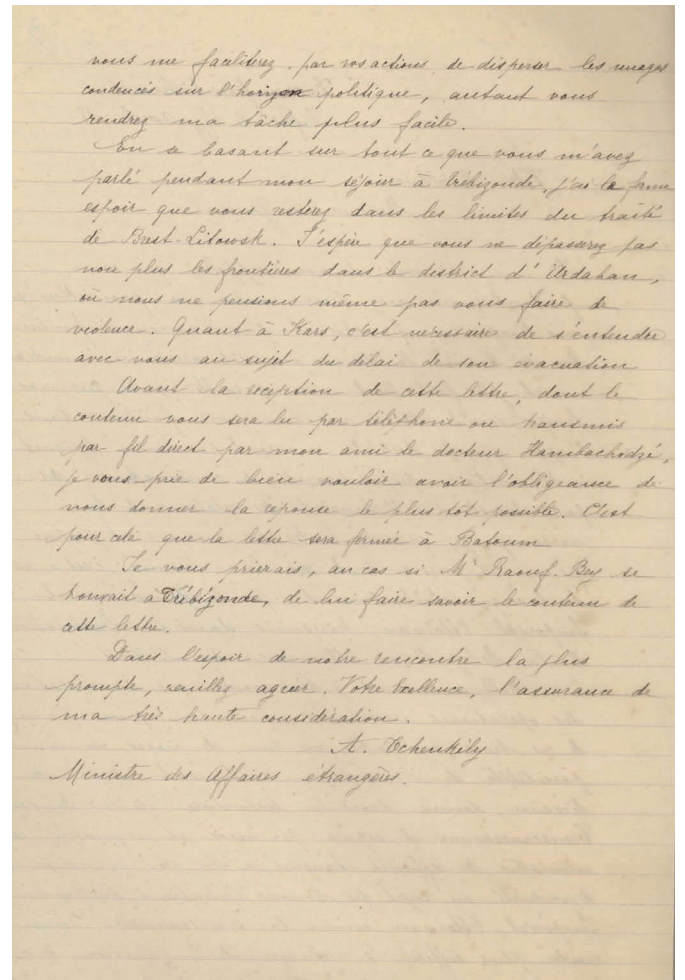 vous me faciliterez par vos actions de disperser les nuages
condencés sur l'horizon politique, autant vous
rendrez ma tâche plus facile.
En se basant sur tout ce que vous m'avez
parlé pendant mon séjour à Trébizonde, j'ai la ferme
espoir que vous resterez dans les limites du traité
de Brest-Litowsk. J'espère que vous ne dépasserez pas
non plus les frontières dans le district d'Ardahan,
où nous ne pensions même pas vous faire de
violence. Quant à Kars, c'est necessaire de s'entendre
avec vous au sujet du délai de son évacuation
Avant la reception de cette lettre, dont le
contenu vous sera lu par téléphone ou transmis
par fil direct par mon ami le docteur Hambachodzé,
je vous prie de bien vouloir avoir l'obligeance de
nous donner la réponse le plus tôt possible. C'est
pour celà que la lettre sera fermée à Batoum
Je vous prierais, au cas si Mr Raouf-Bey se
trouvait à Trébizonde, de lui faire savoir le contenu de
cette lettre.
Dans l'espoir de notre rencontre la plus
prompte, veuillez agréer, Votre Excellence, l'assurance de
ma très haute considération.
A. Tchenkély
Ministre des Affaires étrangères.